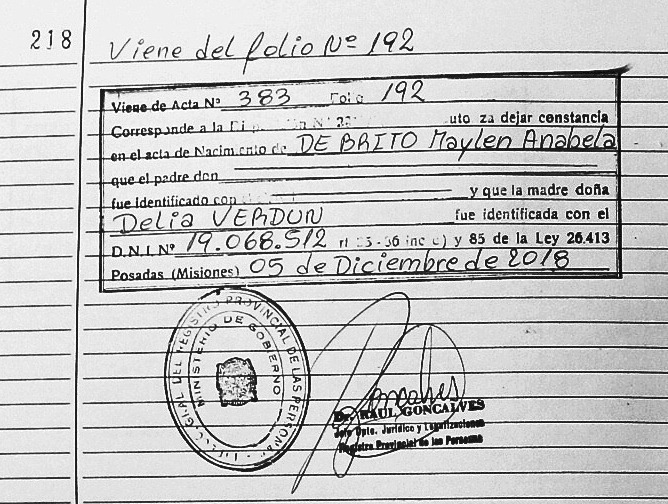 218
Viene del folio Nº 192
Viene de Acta Nº 383 Folio 192
Corresponde a la dejar constancia
en el acta de Nacimiento de DE BRITO Maylen Anabela
que el padre don
fue identificado con y que la madre doña
Delia VERDUN fue identificada con el
D.N.I. Nº 19.068.512 y 85 de la Ley 26.413
Posadas (Misiones) 05 de Diciembre de 2018
DEL REGISTRO PROVINCIAL DE LAS PERSONAS
MINISTERIO DE GOBIERNO
Goncalves
Dr. RAUL GONCALVES
Jefe Dpto. Jurídico y Legalizaciones
Registro Provincial de las Personas